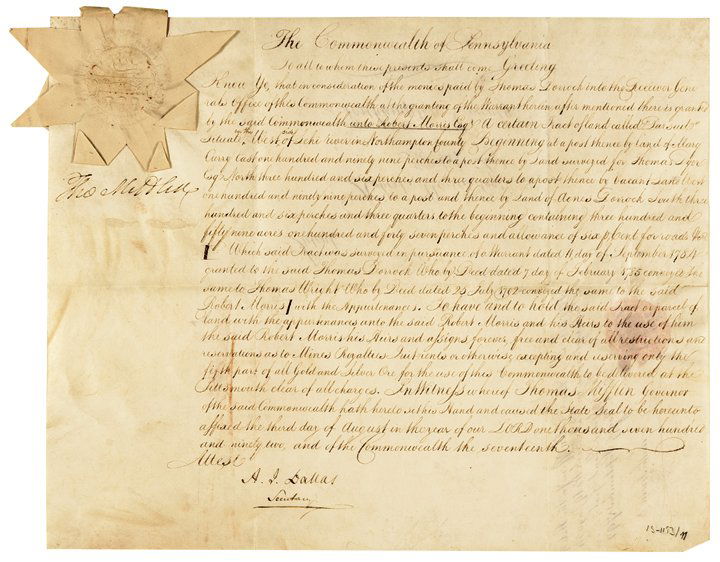 The Commonwealth of Pennsylvania
To all to whom these presents shall come Greeting
Know Ye, that in consideration of the monies paid by Thomas Dorrock into the Receiver Gene
rals Office of this Commonwealth at the granting of the Warrant herein after mentioned there is granted
by the said Commonwealth unto Robert Morris Esqr A certain Tract of land called Pursuit
Situate on the West side of Lehi River in Northampton County Beginning at a post thence by land of Mary
Curry East one hundred and ninety nine perches to a post thence by Land surveyed for Thomas
Esqr North three hundred and six perches and three quarters to a post thence by vacant Land West
one hundred and ninety nine perches to a post and thence by Land of Dorrock South three
hundred and six perches and three quarters to the beginning containing three hundred and
fifty nine acres one hundred and forty seven perches and allowance of six p Cent for roads
Which said Tract was surveyed in pursuance of a Warrant dated 11 day of September 1754
granted to the said Thomas Dorrock Who by Deed dated 7 day of February 1775 conveyed the
same to Thomas Wright Who by Deed dated 23 July 1762 conveyed the same to the said
Robert Morris with the Appurtenances. To have and to hold the said Tract or parcel of
land with the appurtenances unto the said Robert Morris and his Heirs to the use of him
the said Robert Morris his Heirs and assigns forever free and clear of all restrictions and
reservations as to Mines Royalties Quitrents or otherwise excepting and reserving only the
fifth part of all Gold and Silver Ore for the use of this Commonwealth to be delivered at the
Pittsmouth clear of all charges. In Witness whereof Thomas Mifflin Governor
of the said Commonwealth hath hereto set his Hand and caused the State Seal to be hereunto
affixed the third day of August in the year of our LORD one thousand seven hundred
and ninety two, and of the Commonwealth the seventeenth.
Attest
Tho Mifflin
A. J. Dallas
Secretary